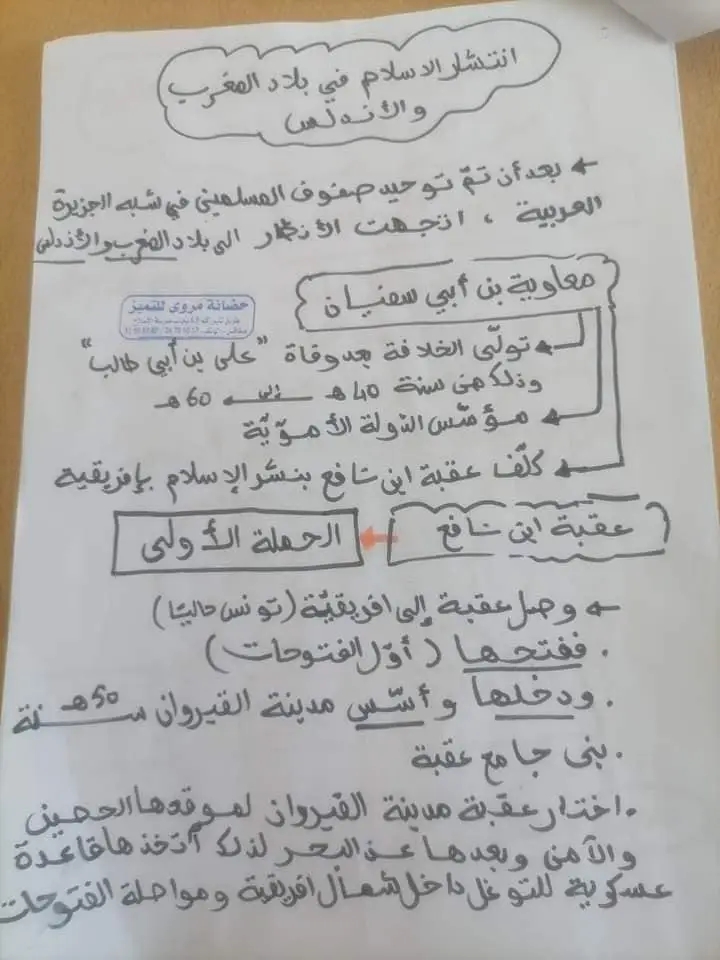 انتشار الاسلام في بلاد المغرب
والأندلس
← بعد أن تمّ توحيد صفوف المسلمين في شبه الجزيرة
العربية ، اتجهت الأنظار الى بلاد المغرب والأندلس
معاوية بن أبي سفيان
حضانة مروى للتميز
تولّى الخلافة بعد وفاة "علي بن أبي طالب"
وذلك من سنة 40 هـ إلى 60 هـ
مؤسّس الدولة الأمويّة
كلّف عقبة ابن نافع بنشر الإسلام بإفريقية
عقبة ابن نافع ← الحملة الأولى
← وصل عقبة إلى افريقيّة (تونس حاليّا)
. ففتحها (أوّل الفتوحات)
. ودخلها وأسّس مدينة القيروان سنة 50 هـ
. بنى جامع عقبة
. اختار عقبة مدينة القيروان لموقعها الحصين
والآمن وبعدها عن البحر لذلك أتخذها قاعدة
عسكرية للتوغل داخل شمال افريقية ومواصلة الفتوحات